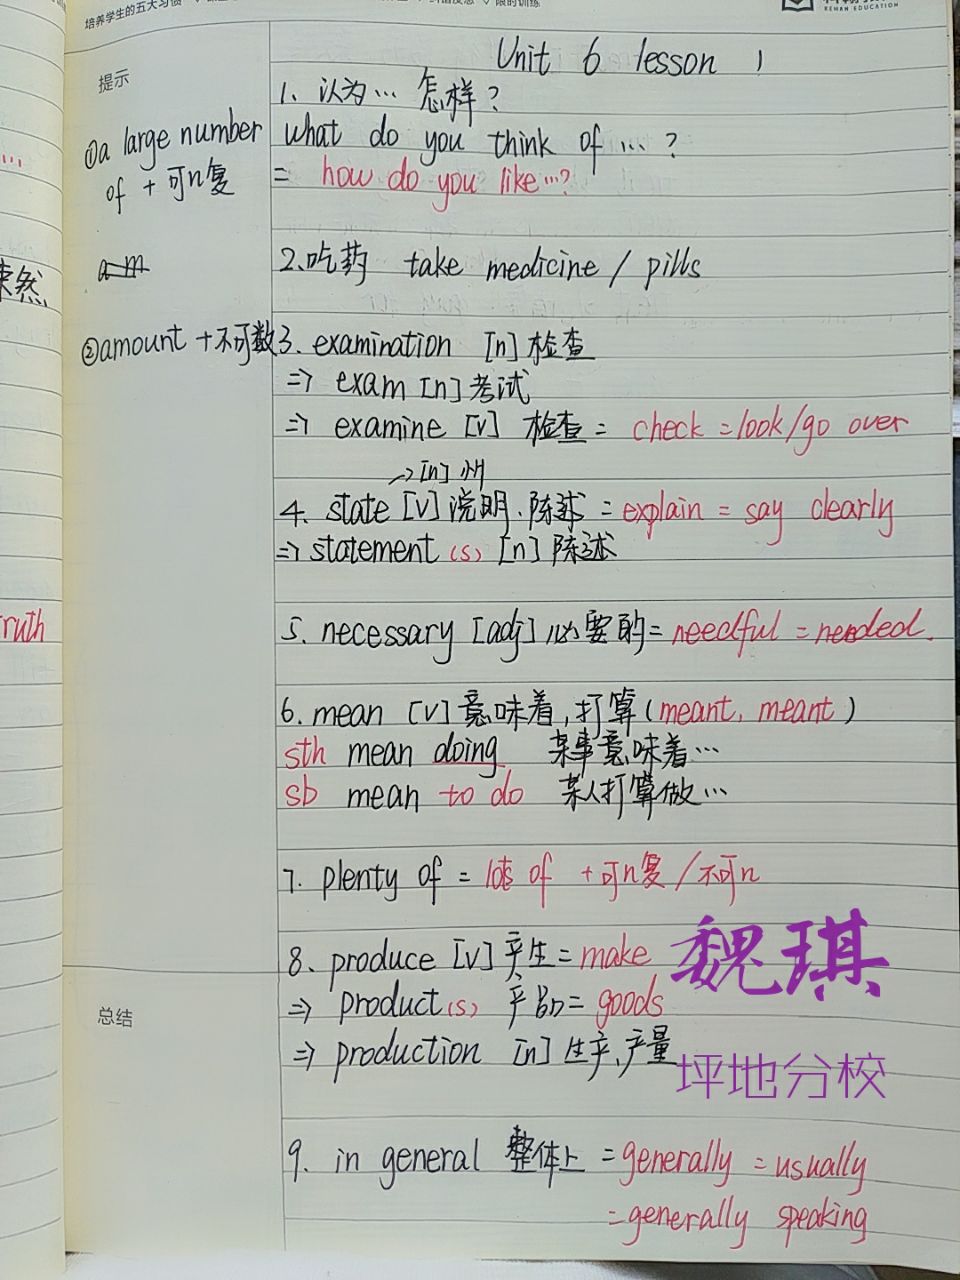 培养学生的五大习惯
限时训练
REHAN EDUCATION
提示
Unit 6 lesson 1
1、认为… 怎样？
①a large number
of + 可n复
what do you think of …?
= how do you like…?
2.吃药 take medicine / pills
②amount + 不可数
3. examination [n] 检查
=> exam [n] 考试
=> examine [v] 检查 = check = look/go over
→[n] 州
4. state [v] 说明、陈述 = explain = say clearly
=> statement (s) [n] 陈述
ruth
5. necessary [adj] 必要的 = needful = needed.
6. mean [v] 意味着, 打算 (meant, meant)
sth mean doing 某事意味着…
sb mean to do 某人打算做…
7. plenty of = lots of + 可n复 / 不可n
8、produce [v] 产生 = make
=> product(s) 产品 = goods
=> production [n] 生产、产量
魏琪
坪地分校
总结
9. in general 整体上 = generally = usually
= generally speaking